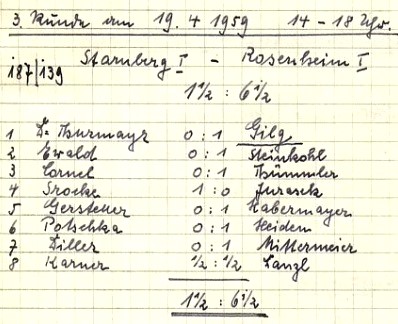 3. Runde am 19. 4 1959 14 - 18 Uhr.
Starnberg I - Rosenheim I
i87/139
1 1/2 : 6 1/2
1 Dr. Thurmayr 0 : 1 Gilg
2 Ewald 0 : 1 Steinkohl
3 Cornel 0 : 1 Thümmler
4 Srocke 1 : 0 Juraschk
5 Gerstetter 0 : 1 Habermayer
6 Potschka 0 : 1 Heiden
7 Diller 0 : 1 Mittermeier
8 Karner 1/2 : 1/2 Lanzl
1 1/2 : 6 1/2